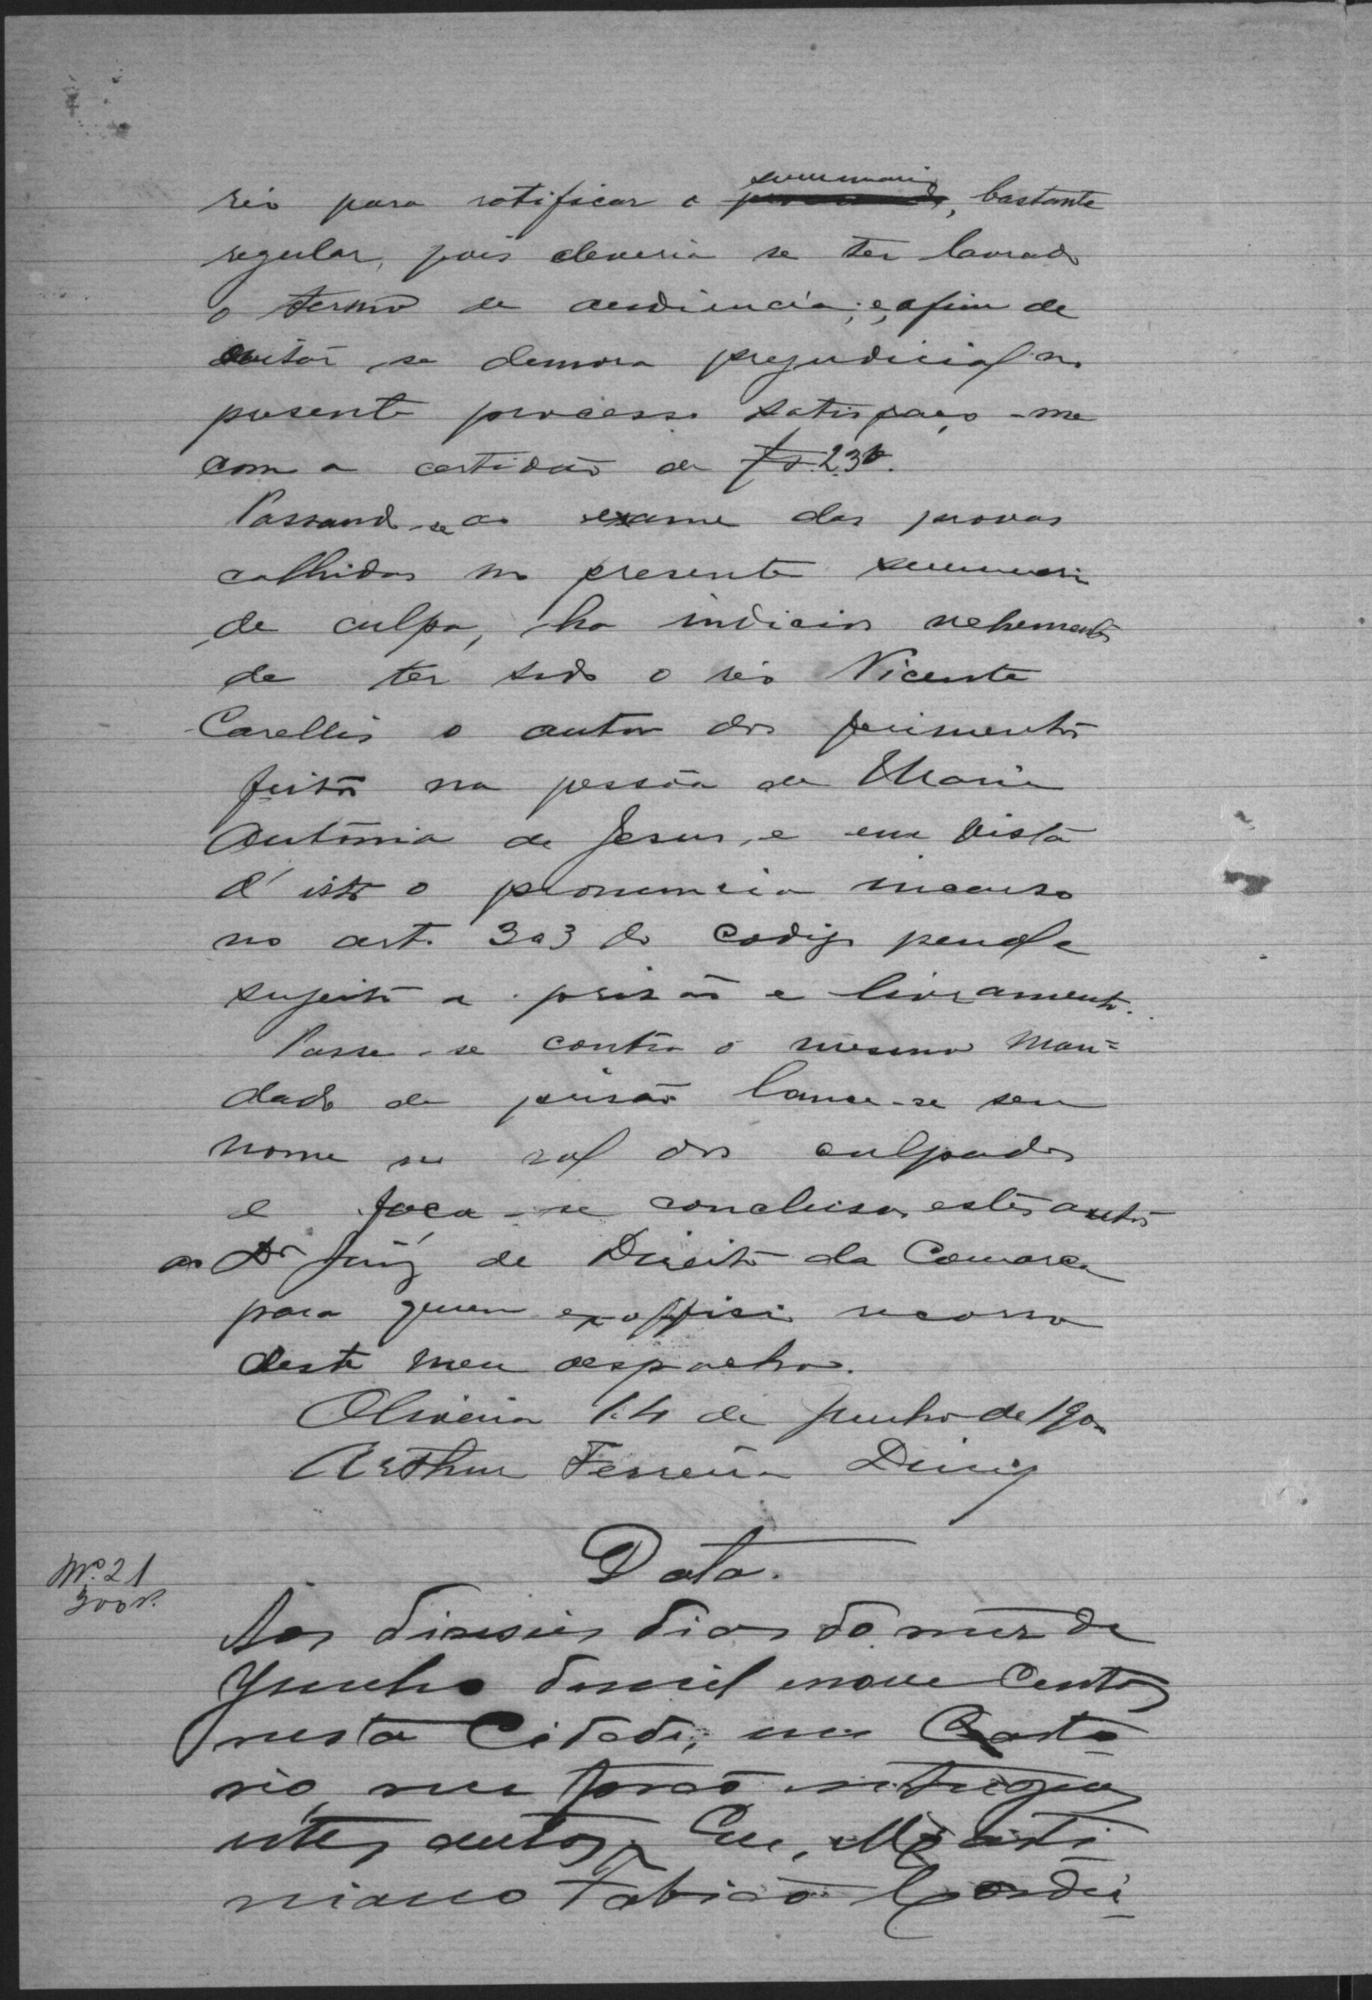 rio para ratificar o summario, bastante
regular, pois deveria se ter lavrado
o termo de audiencia; e, afim de
evitar se demora prejudicial no
presente processo satisfaço-me
com a certidão de fs. 23v.
Passando-se ao exame das provas
colhidas no presente summario
de culpa, ha indicios vehementes
de ter sido o réo Vicente
Carellis o autor dos ferimentos
feitos na pessôa de Maria
Antonia de Jesus, e em vista
d'isto o pronuncio incurso
no art. 303 do codigo penal e
sujeito a prisão e livramento.
Passe-se contra o mesmo man=
dado de prisão lance-se seu
nome no rol dos culpados
e faça-se conclusos estes autos
ao Dr Juiz de Direito da Comarca
para quem ex-officio recorro
deste meu despacho.
Oliveira 14 de Junho de 190
Arthur Ferreira Diniz
Data.
Nº 21
300 rs.
Aos diseseis dias do mez de
Junho de mil e nove centos
nesta Cidade, em Carto
rio, me forão entregues
estes autos. Eu, Marti
niano Fabião Cordei